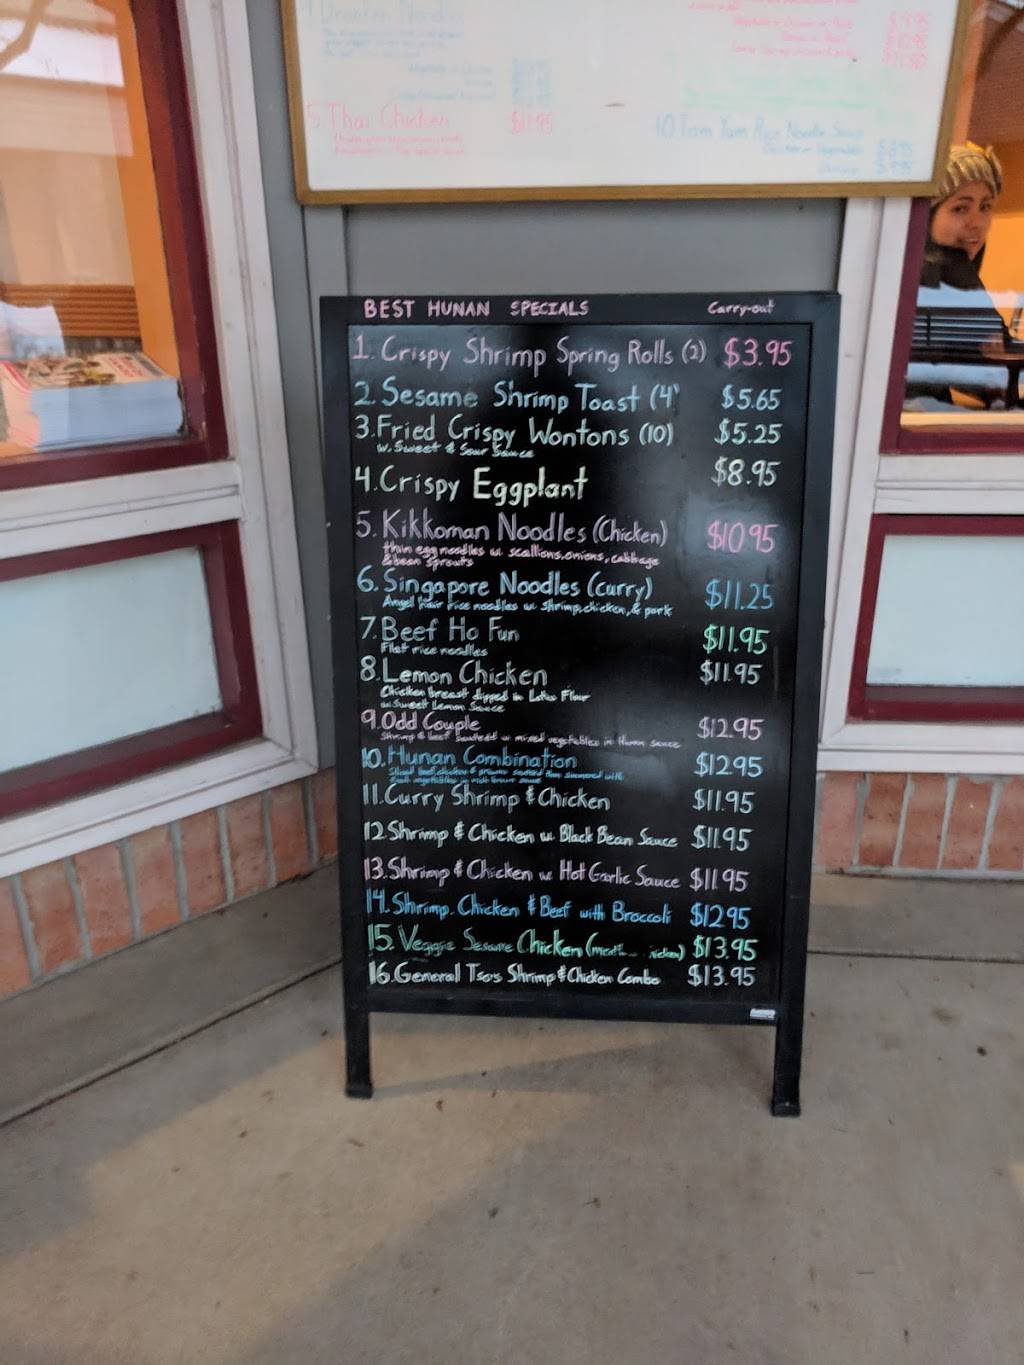 5. Thai Chicken $11.95
10 Tom Yam Rice Noodle Soup
BEST HUNAN SPECIALS Carry-out
1. Crispy Shrimp Spring Rolls (2) $3.95
2. Sesame Shrimp Toast (4) $5.65
3. Fried Crispy Wontons (10) $5.25
w. Sweet & Sour Sauce
4. Crispy Eggplant $8.95
5. Kikkoman Noodles (Chicken) $10.95
thin egg noodles w. scallions, onions, cabbage
& bean sprouts
6. Singapore Noodles (Curry) $11.25
Angel hair rice noodles w. shrimp, chicken, & pork
7. Beef Ho Fun $11.95
Flat rice noodles
8. Lemon Chicken $11.95
Chicken breast dipped in Lotus Flour
w. Sweet Lemon Sauce
9. Odd Couple $12.95
Shrimp & beef sauteed w mixed vegetables in Hunan sauce
10. Hunan Combination $12.95
11. Curry Shrimp & Chicken $11.95
12. Shrimp & Chicken w. Black Bean Sauce $11.95
13. Shrimp & Chicken w. Hot Garlic Sauce $11.95
14. Shrimp. Chicken & Beef with Broccoli $12.95
15. Veggie Sesame Chicken $13.95
16. General Tso's Shrimp & Chicken Combo $13.95